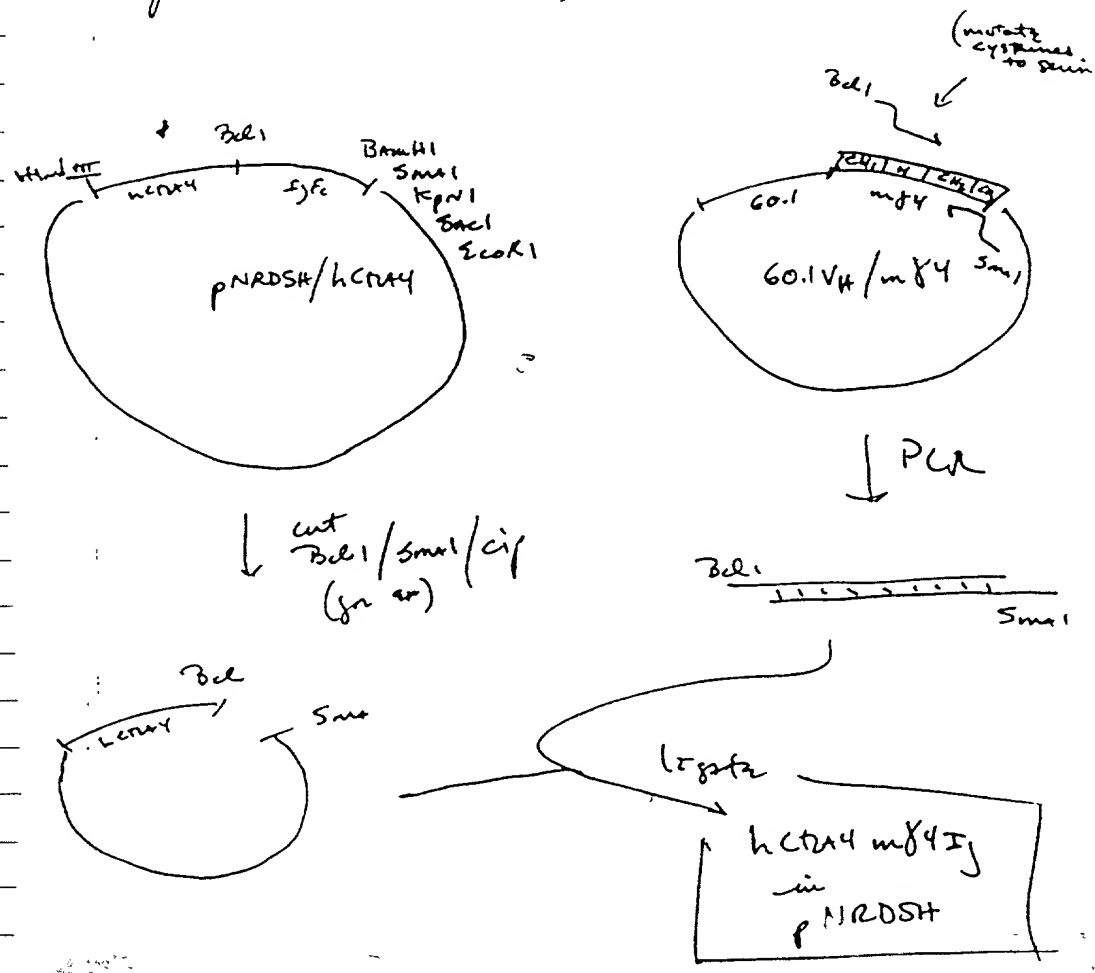 (mutate
cysteines
to serin
Bcl1
Bcl1
Hind III
hCTLA4
IgFc
BAMH1
SMA1
KpN1
SAC1
EcoR1
pNRDSH/hCTLA4
CH1 H CH2
60.1
mγ4
Sma1
60.1VH/mγ4
PCR
cut
Bcl1/Sma1/cip
Bcl1
Sma1
Bcl
hCTLA4
Sma
ligate
hCTLA4 mγ4Ig
in
pNRDSH